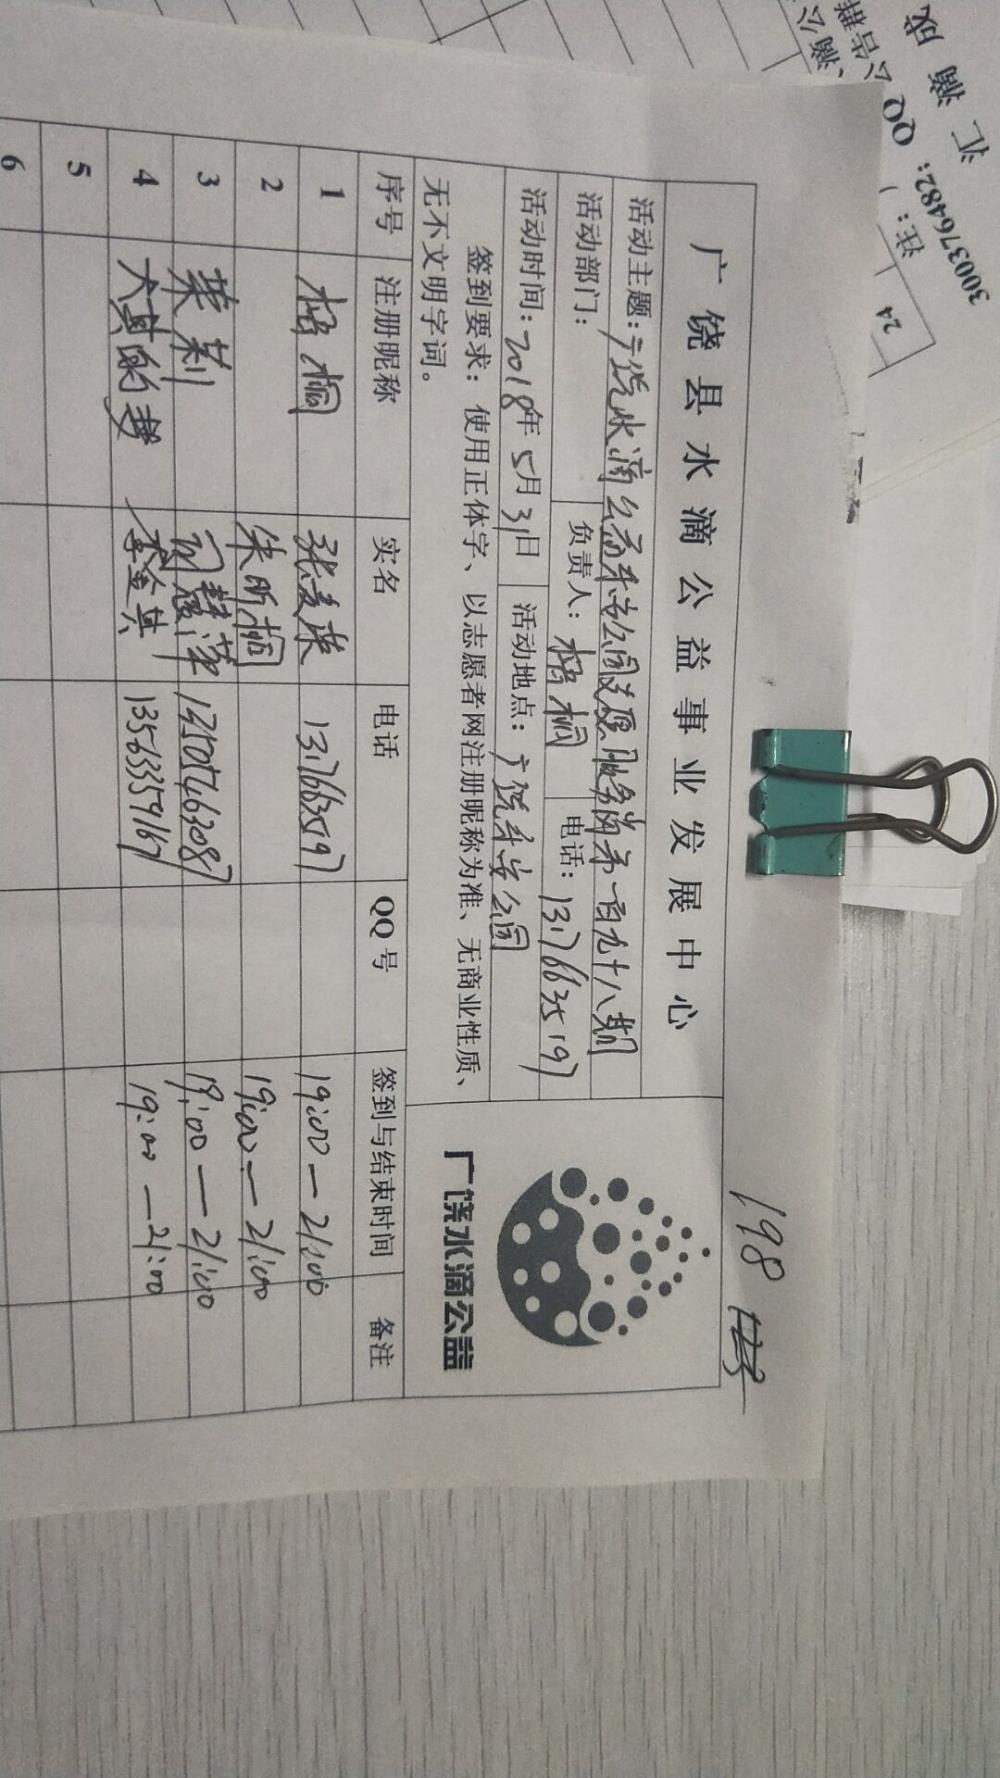 198
广饶县水滴公益事业发展中心
活动主题：广饶水滴公益乐安公园义愿服务岗第一百九十八期
活动部门： 负责人：梧桐 电话：13176635197
活动时间：2018年5月31日 活动地点：广饶乐安公园
签到要求：使用正体字、以志愿者网注册昵称为准、无商业性质、
无不文明字词。
广饶水滴公益
序号 注册昵称 实名 电话 QQ号 签到与结束时间 备注
1 梧桐 张爱荣 1376635197 19:00—21:00
2 朱昕桐 19:00—21:00
3 茉莉 19:00—21:00
4 大其的梦 李金其 13563359167 19:00—21:00
5
6
24
注：
300376482；QQ
公告群
滴公
汇滴成